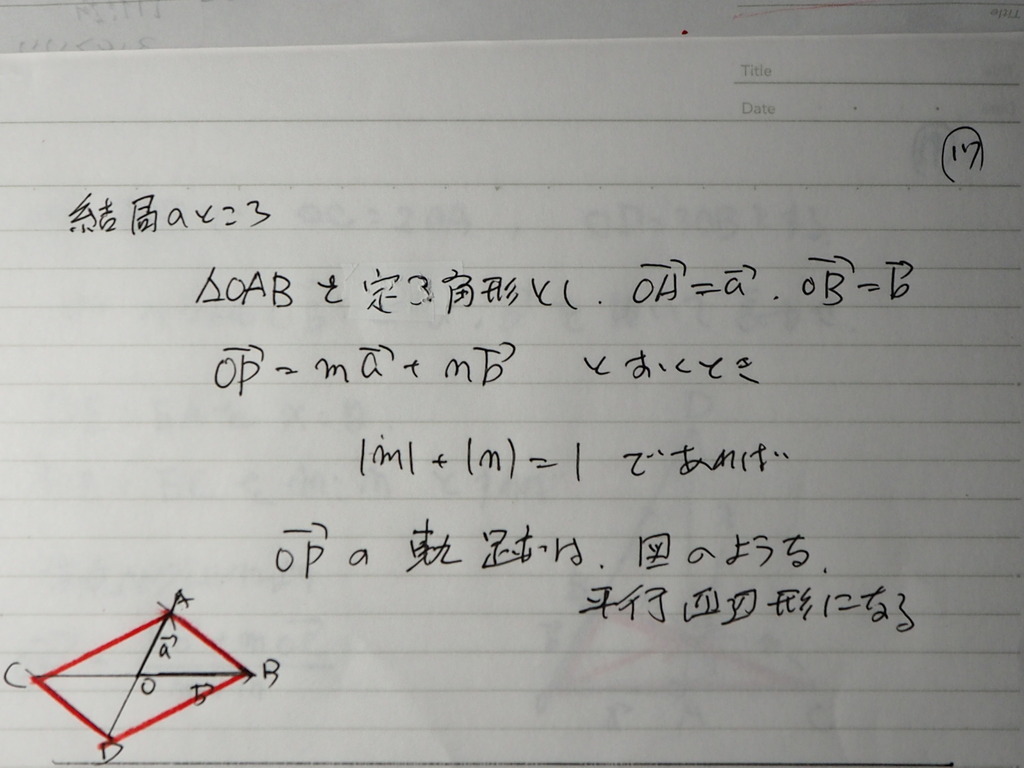 Title
Date
⑰
結局のところ
△OABを定3角形とし. OA→=a→. OB→=b→
OP→ = ma→ + nb→ とおくとき
|m| + |n| = 1 であれば
OP→ の 軌跡は. 図のような.
平行四辺形になる
A
a→
C
O
B
b→
D